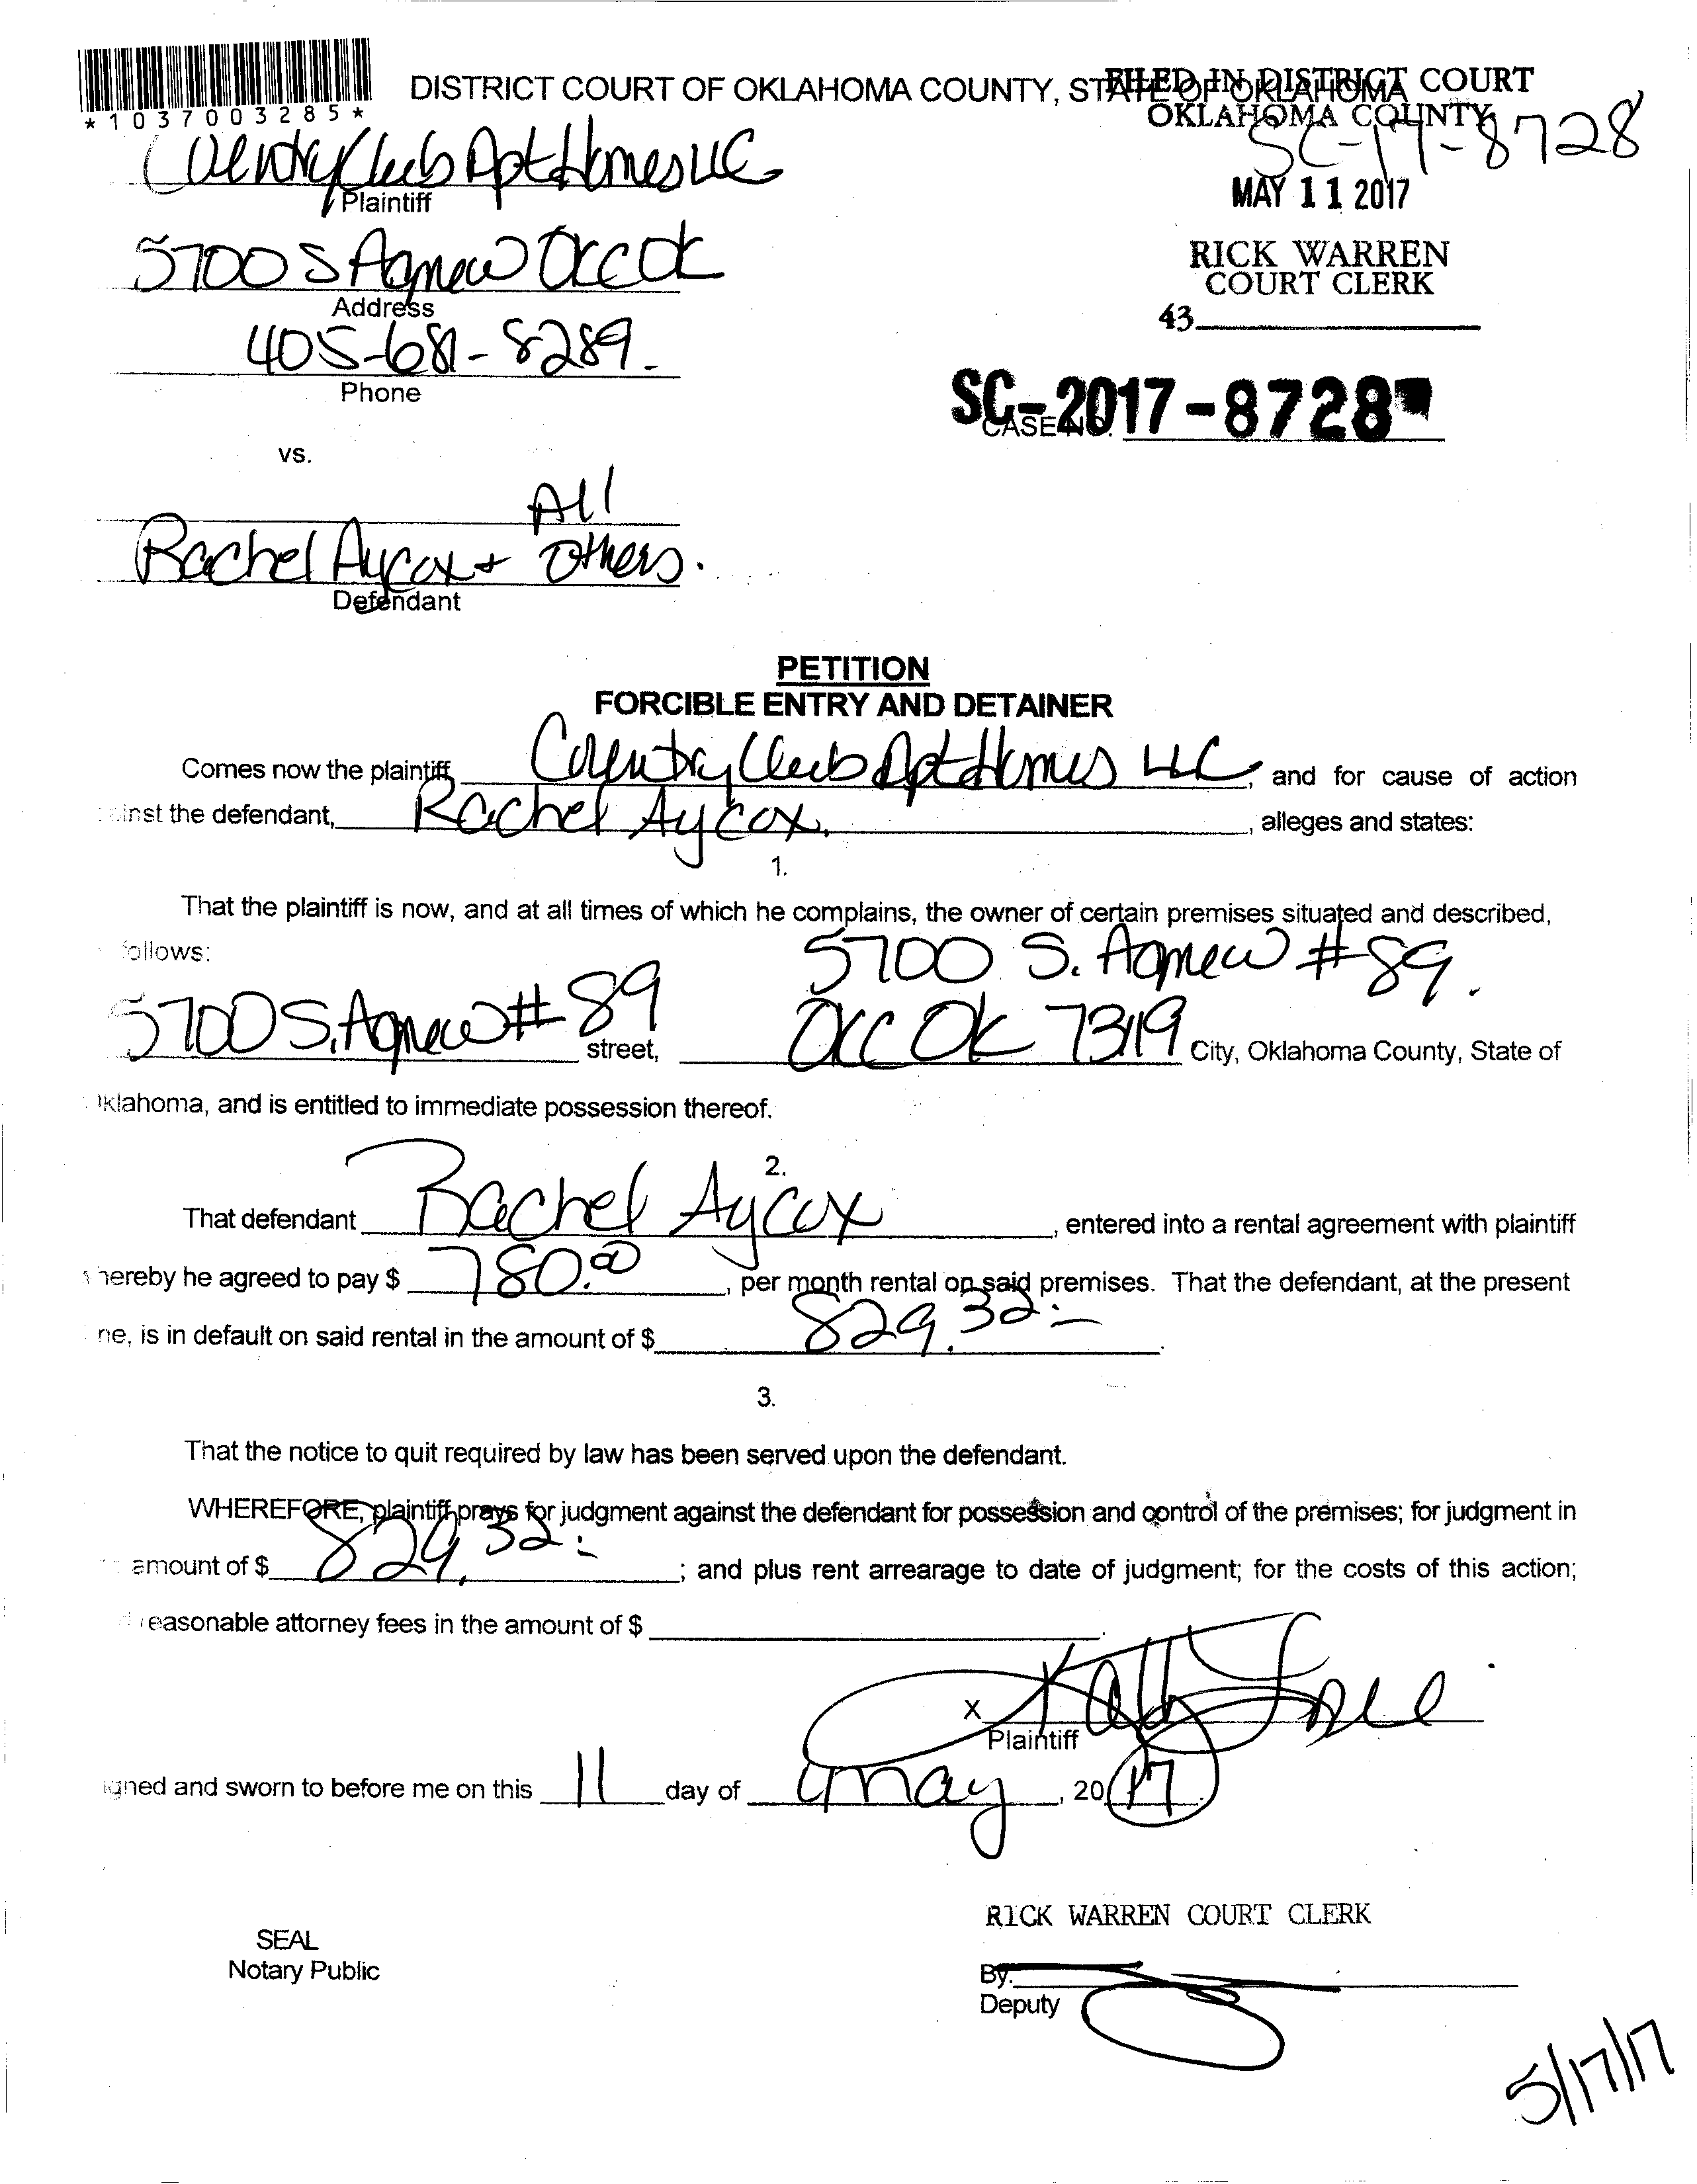 *1037003285*
DISTRICT COURT OF OKLAHOMA COUNTY, STATE OF OKLAHOMA
FILED IN DISTRICT COURT
OKLAHOMA COUNTY
SC-17-8728
Country Club Apt Homes LLC
Plaintiff
MAY 11 2017
5700 S Agnew OKC OK
Address
RICK WARREN
COURT CLERK
405-681-8289.
Phone
43
SC-2017-8728
CASE NO.
vs.
All
Rachel Aycox + Others.
Defendant
PETITION
FORCIBLE ENTRY AND DETAINER
Comes now the plaintiff Country Club Apt Homes LLC, and for cause of action
inst the defendant, Rachel Aycox., alleges and states:
1.
That the plaintiff is now, and at all times of which he complains, the owner of certain premises situated and described,
follows:
5700 S. Agnew #89.
5700 S. Agnew #89 street, OKC OK 73119 City, Oklahoma County, State of
klahoma, and is entitled to immediate possession thereof.
2.
That defendant Rachel Aycox, entered into a rental agreement with plaintiff
hereby he agreed to pay $ 780.00, per month rental on said premises. That the defendant, at the present
ne, is in default on said rental in the amount of $ 829.32.
3.
That the notice to quit required by law has been served upon the defendant.
WHEREFORE, plaintiff prays for judgment against the defendant for possession and control of the premises; for judgment in
amount of $ 829.32; and plus rent arrearage to date of judgment; for the costs of this action;
reasonable attorney fees in the amount of $
X
Plaintiff
igned and sworn to before me on this 11 day of May, 2017.
RICK WARREN COURT CLERK
SEAL
Notary Public
By.
Deputy
5/17/17